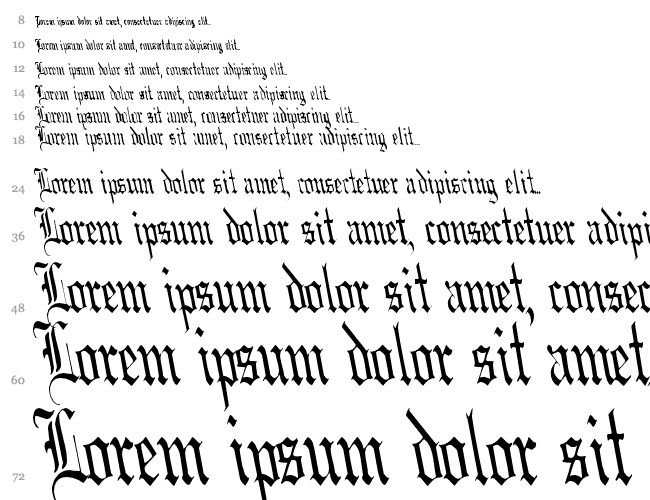 8 Lorem ipsum dolor sit amet, consectetuer adipiscing elit...
10 Lorem ipsum dolor sit amet, consectetuer adipiscing elit...
12 Lorem ipsum dolor sit amet, consectetuer adipiscing elit...
14 Lorem ipsum dolor sit amet, consectetuer adipiscing elit...
16 Lorem ipsum dolor sit amet, consectetuer adipiscing elit...
18 Lorem ipsum dolor sit amet, consectetuer adipiscing elit...
24 Lorem ipsum dolor sit amet, consectetuer adipiscing elit...
36 Lorem ipsum dolor sit amet, consectetuer adipi
48 Lorem ipsum dolor sit amet, consec
60 Lorem ipsum dolor sit amet,
72 Lorem ipsum dolor sit